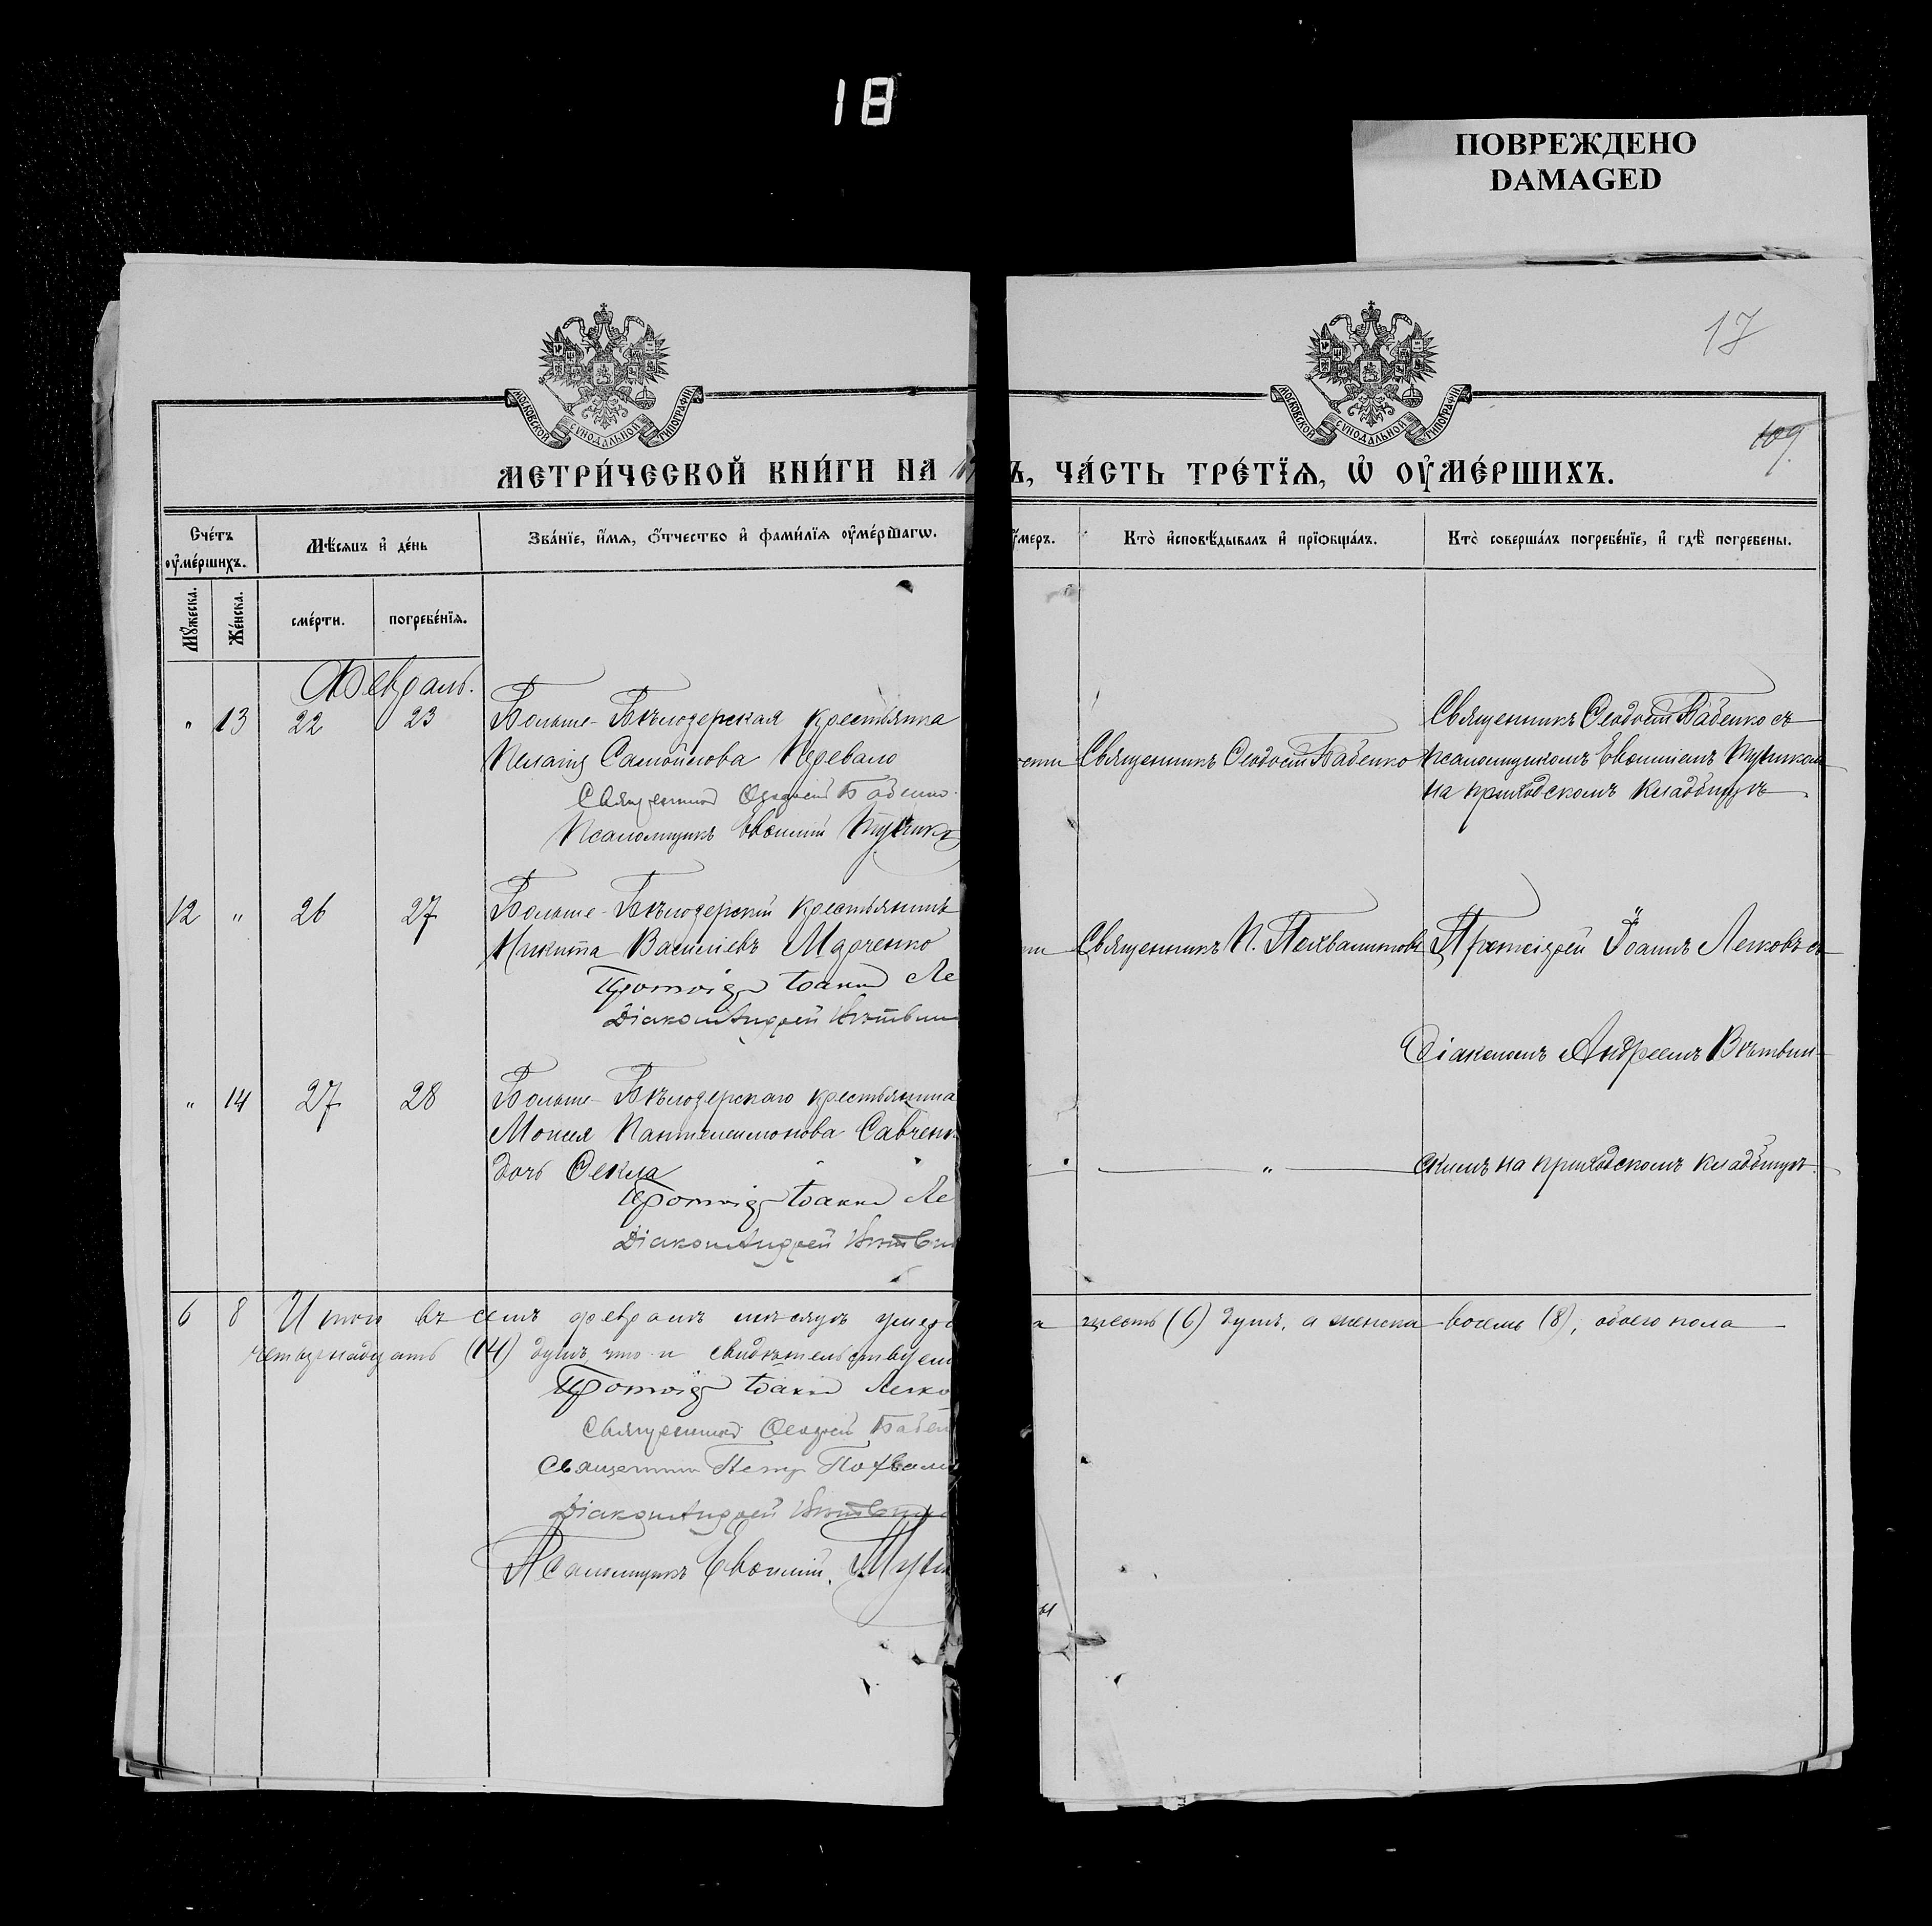 18
ПОВРЕЖДЕНО
DAMAGED
17
109
МОСКОВСКОЙ СѴНОДАЛЬНОЙ ТИПОГРАФІИ
МОСКОВСКОЙ СѴНОДАЛЬНОЙ ТИПОГРАФІИ
МЕТРИ́ЧЕСКОЙ КНИ́ГИ НА
Ъ, ЧА́СТЬ ТРЕ́ТЇѦ, Ѡ҆ ОУ҆МЕ́РШИХЪ.
Сче́тъ оу҆ме́ршихъ.
Мѣ́сяцъ и҆ де́нь
Зва́нїе, и҆́мѧ, ѻ҆́тчество и҆ фами́лїѧ оу҆ме́ршагѡ.
оу҆́меръ.
Кто̀ и҆сповѣ́дывалъ и҆ прїѻбща́лъ.
Кто̀ соверша́лъ погребе́нїе, и҆ гдѣ̀ погребены.
Мꙋ́жеска.
Же́нска.
сме́рти.
погребе́нїѧ.
Февраль.
" 13 22 23 Больше-Бѣлозерская крестьянка
Пелагія Самойлова Перевало
Священник Ѳеодосій Бабенко
Псаломщикъ Евѳимій
Священникъ Ѳеодосій Бабенко
Священникъ Ѳеодосій Бабенко съ
псаломщикомъ Евѳиміемъ
на приходскомъ кладбищѣ.
12 " 26 27 Больше-Бѣлозерскій крестьянинъ
Никита Васильевъ
Протоіер Іоанн Ле
Діакон Андрей Вѣтвин
Священникъ П. Похвалитовъ
Протоіерей Іоаннъ Легковъ съ
Діакономъ Андреемъ Вѣтвин-
" 14 27 28 Больше-Бѣлозерскаго крестьянина
Моисея Пантелеимонова Савченк
дочь Ѳекла
Протоіер Іоанн Ле
Діакон Андрей Вѣтвин
"
скимъ на приходскомъ кладбищѣ.
6 8 Итого въ семъ февралѣ мѣсяцѣ умерло
шесть (6) душъ, а женска восемь (8), обоего пола
четырнадцать (14) душъ, что и свидѣтельствуем
Протоіер Іоанн Легко
Священник Ѳеодосій Бабен
Священник Петр Похвали
Діакон Андрей Вѣтвин
Псаломщикъ Евѳимій